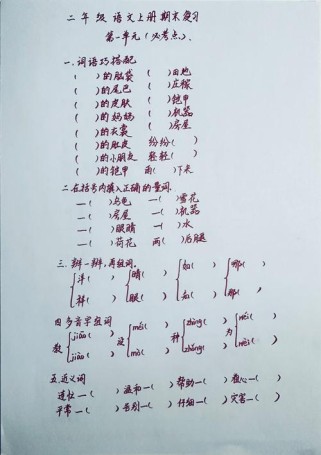 二年级语文上册期末复习
第一单元(必考点)
一、词语巧搭配
(  )的脑袋 (  )田地
(  )的尾巴 (  )庄稼
(  )的皮肤 (  )铠甲
(  )的妈妈 (  )机器
(  )的衣裳 (  )房屋
(  )的肚皮 纷纷(  )
(  )的小朋友 轻轻(  )
(  )的铠甲 雨(  )下来
二、在括号内填入正确的量词.
一(  )乌龟 一(  )雪花
一(  )房屋 一(  )机器
一(  )眼睛 一(  )水
一(  )荷花 两(  )后腿
三、辨一辨,再组词。
洋(  ) 晴(  ) 如(  ) 哪(  )
祥(  ) 眼(  ) 知(  ) 那(  )
四、多音字组词
教 jiāo(  ) 没 méi(  ) 种 zhǒng(  ) 为 wéi(  )
jiào(  ) mò(  ) zhòng(  ) wèi(  )
五、近义词
连忙—(  ) 温和—(  ) 帮助—(  ) 
平常—(  ) 告别—(  ) 仔细—(  ) 灾害—(  )